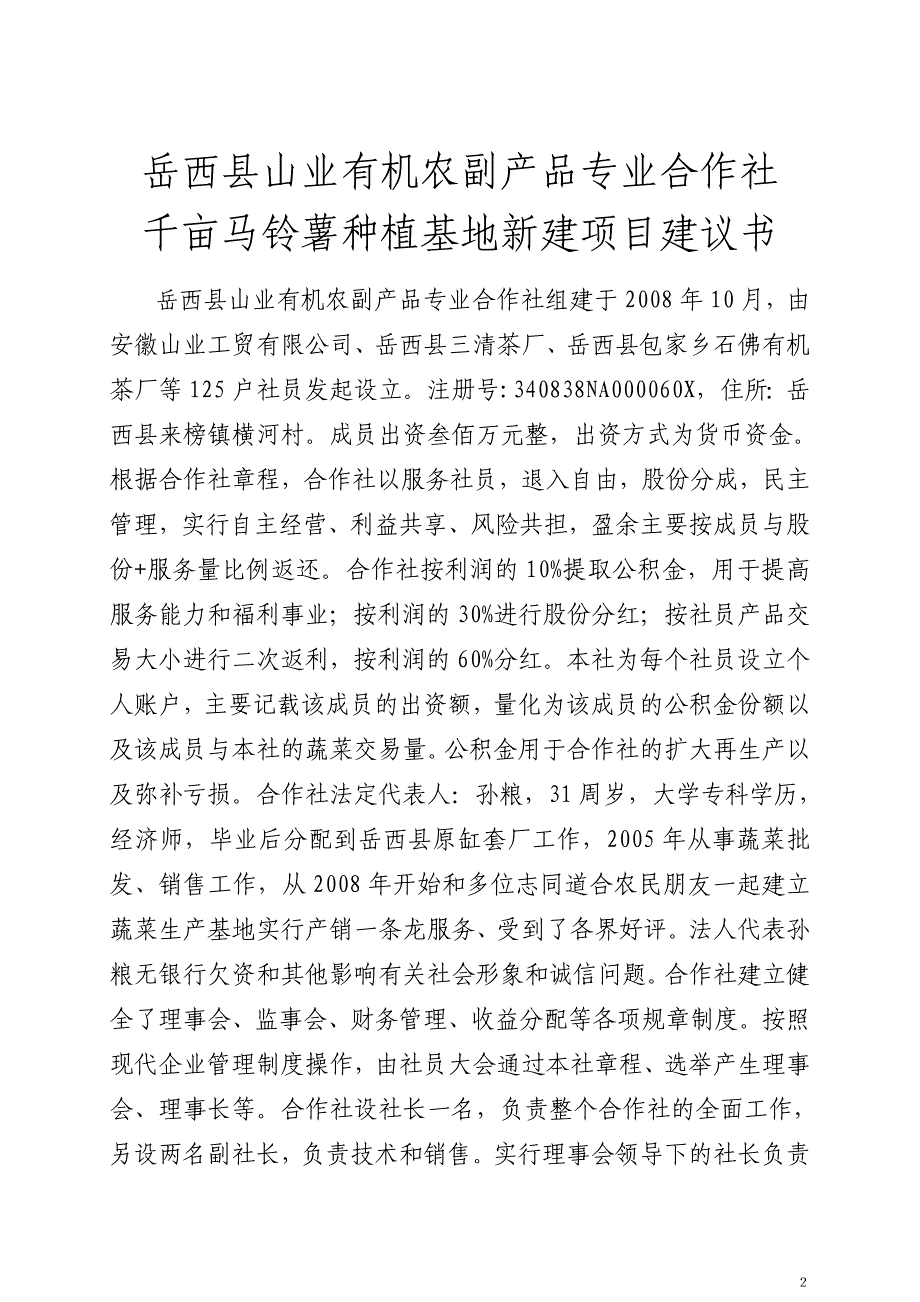 岳西县山业有机农副产品专业合作社
千亩马铃薯种植基地新建项目建议书
岳西县山业有机农副产品专业合作社组建于 2008 年 10 月，由
安徽山业工贸有限公司、岳西县三清茶厂、岳西县包家乡石佛有机
茶厂等 125 户社员发起设立。注册号：340838NA000060X，住所：岳
西县来榜镇横河村。成员出资叁佰万元整，出资方式为货币资金。
根据合作社章程，合作社以服务社员，退入自由，股份分成，民主
管理，实行自主经营、利益共享、风险共担，盈余主要按成员与股
份+服务量比例返还。合作社按利润的 10%提取公积金，用于提高
服务能力和福利事业；按利润的 30%进行股份分红；按社员产品交
易大小进行二次返利，按利润的 60%分红。本社为每个社员设立个
人账户，主要记载该成员的出资额，量化为该成员的公积金份额以
及该成员与本社的蔬菜交易量。公积金用于合作社的扩大再生产以
及弥补亏损。合作社法定代表人：孙粮，31 周岁，大学专科学历，
经济师，毕业后分配到岳西县原缸套厂工作，2005 年从事蔬菜批
发、销售工作，从 2008 年开始和多位志同道合农民朋友一起建立
蔬菜生产基地实行产销一条龙服务、受到了各界好评。法人代表孙
粮无银行欠资和其他影响有关社会形象和诚信问题。合作社建立健
全了理事会、监事会、财务管理、收益分配等各项规章制度。按照
现代企业管理制度操作，由社员大会通过本社章程、选举产生理事
会、理事长等。合作社设社长一名，负责整个合作社的全面工作，
另设两名副社长，负责技术和销售。实行理事会领导下的社长负责
2